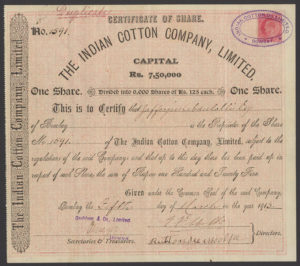 Duplicate
CERTIFICATE OF SHARE.
No. 1091.
THE INDIAN COTTON COMPANY, LIMITED.
CAPITAL
Rs. 7,50,000
One Share. Divided into 6,000 Shares of Rs. 125 each. One Share.
This is to Certify that
of Bombay is the Proprietor of the Share
No. 1091. of The Indian Cotton Company, Limited, subject to the
regulations of the said Company and that up to this day there has been paid up in
respect of such Share the sum of Rupees One Hundred and Twenty Five
Given under the Common Seal of the said Company,
Bombay the Fifth day of March in the year 1913.
Limited
Secretaries & Treasurers.
Directors.
The Indian Cotton Company, Limited.